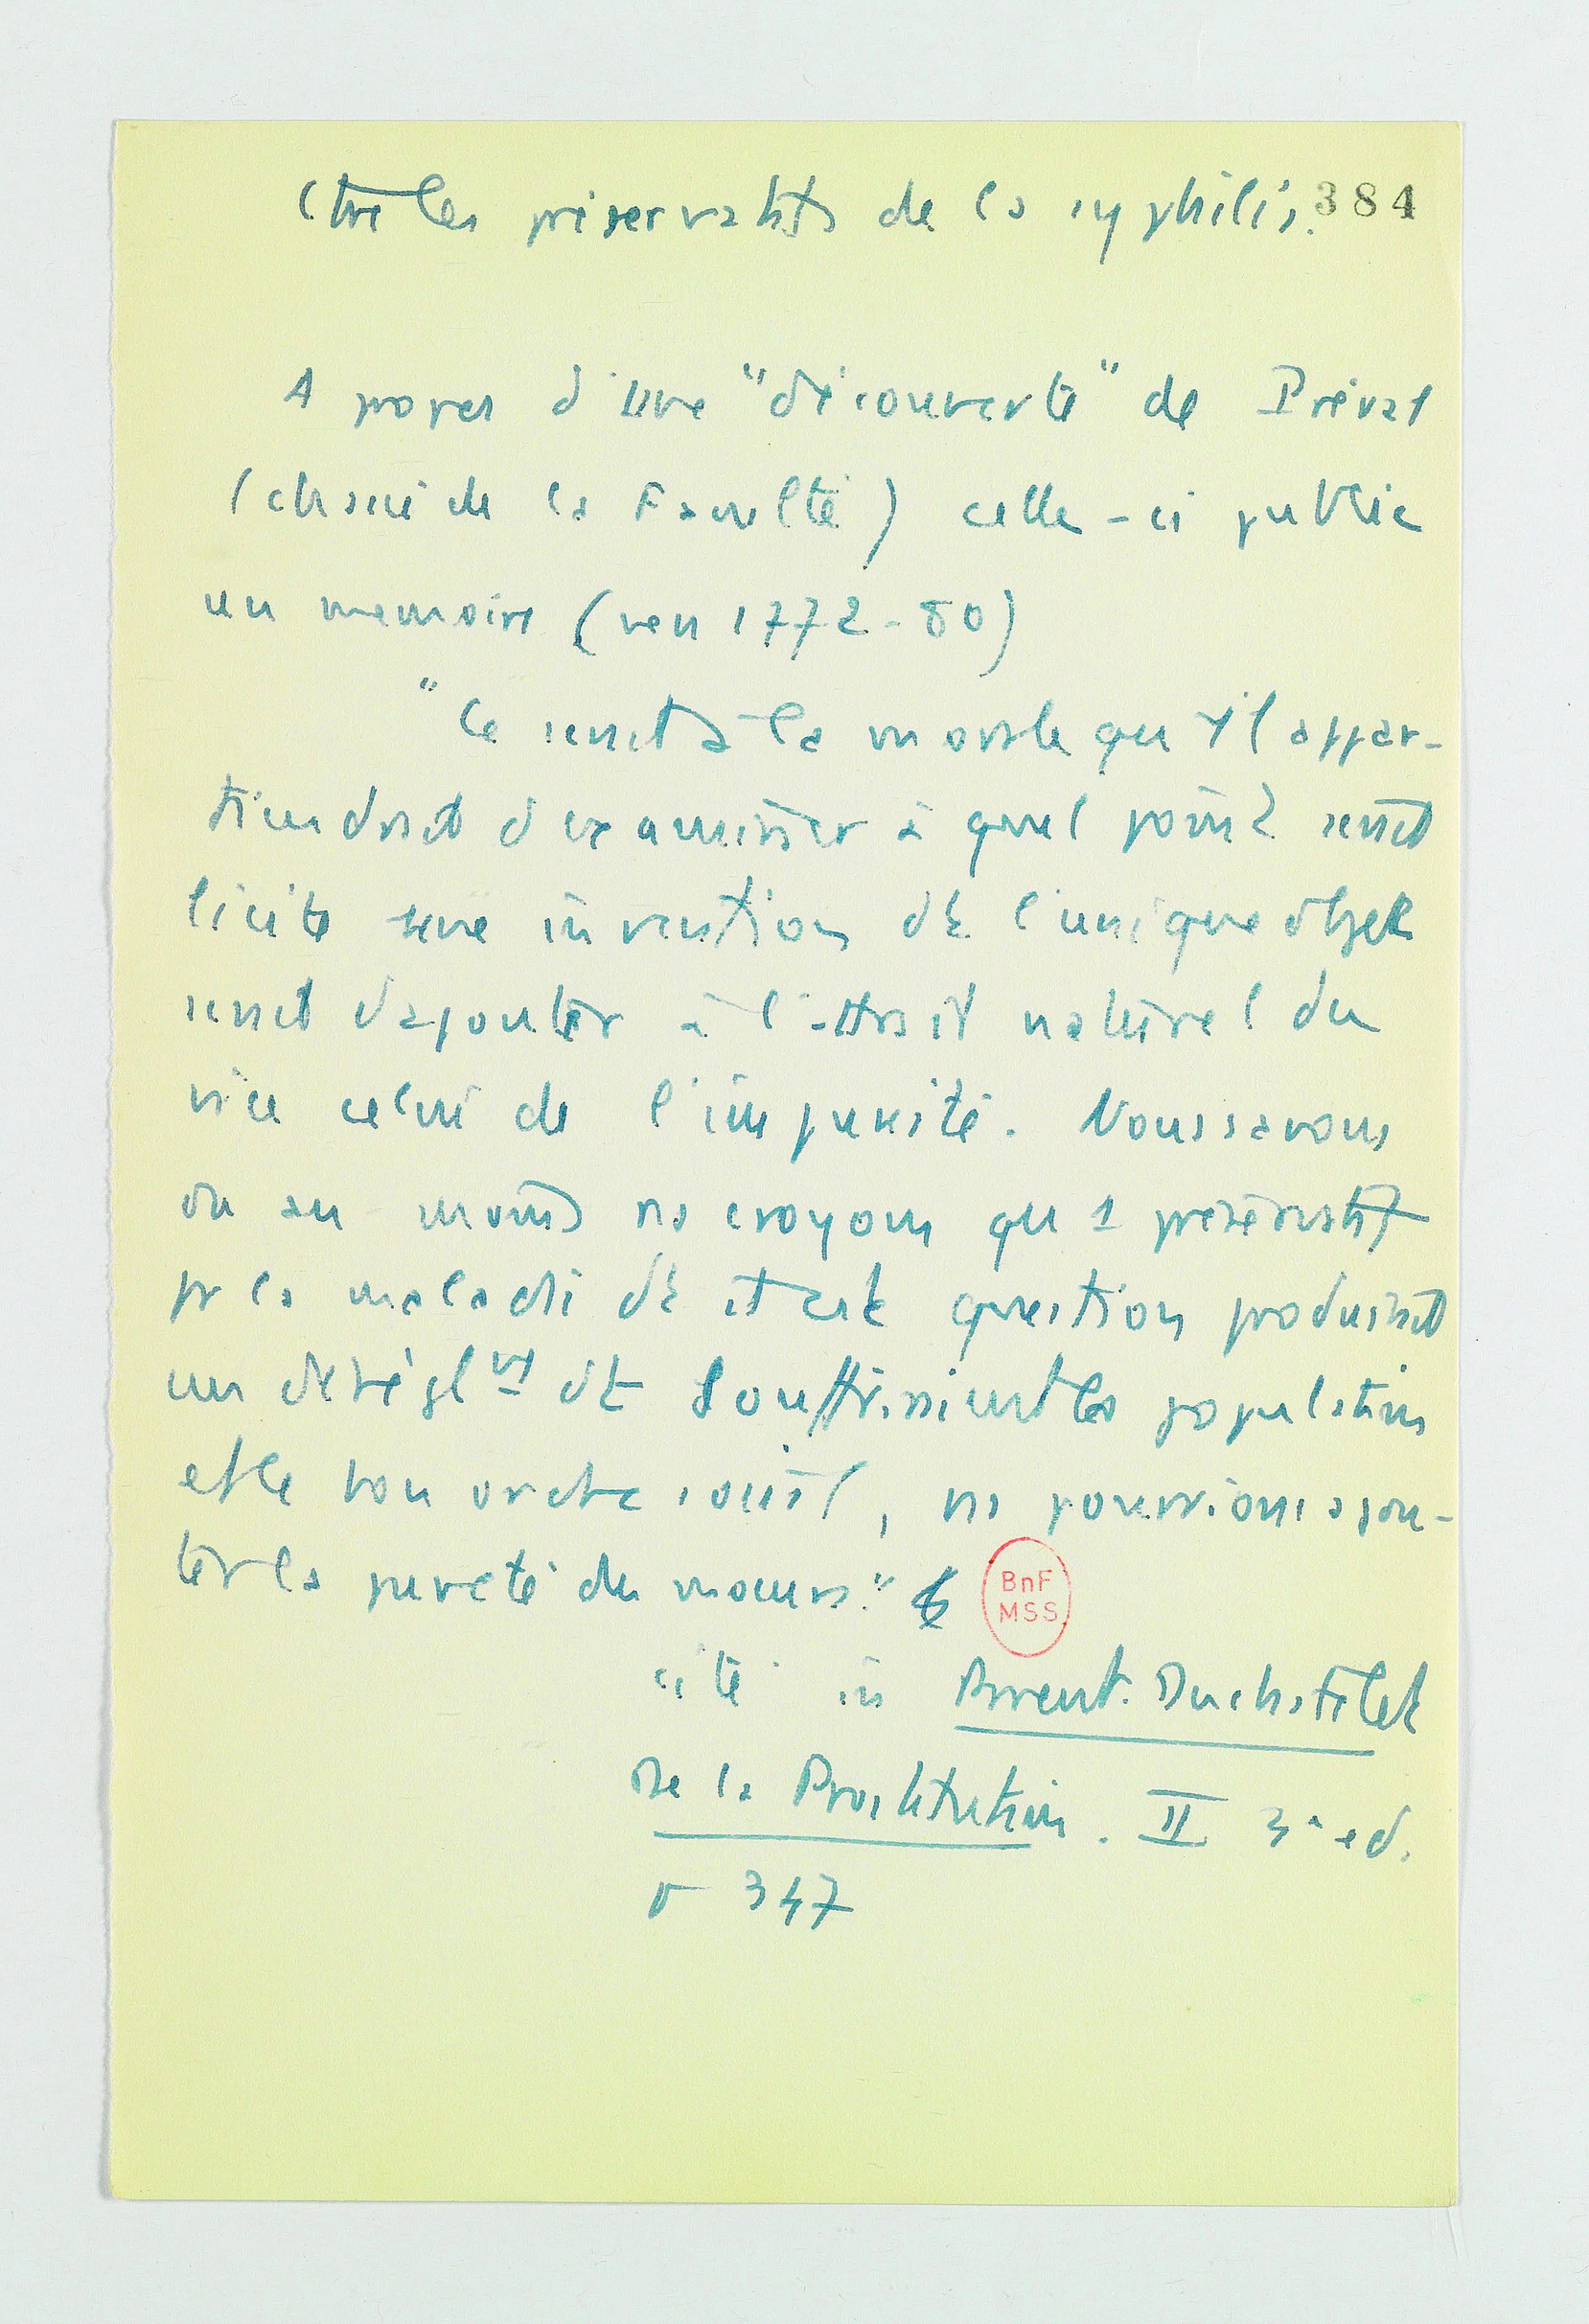 Ctre les préservatifs de la syphilis. 384
A propos d'une "découverte" de Préval
(chassé de la Faculté) celle-ci publie
un memoire (vers 1772-80)
"Ce serait à la morale qu'il appar-
tiendrait d'examiner à quel point serait
licite une invention dt l'unique objet
serait d'ajouter à l'attrait naturel du
vice celui de l'impunité. Nous savons
ou au moins ns croyons qu'1 préservatif
pr la maladie dt il est question produirait
un dérèglmt dt souffriraient la population
et le bon ordre social, ns pourrions ajou-
ter la pureté des moeurs."
BnF
MSS
cité in Parent-Duchatelet
De la Prostitution. II 3e ed.
p 347